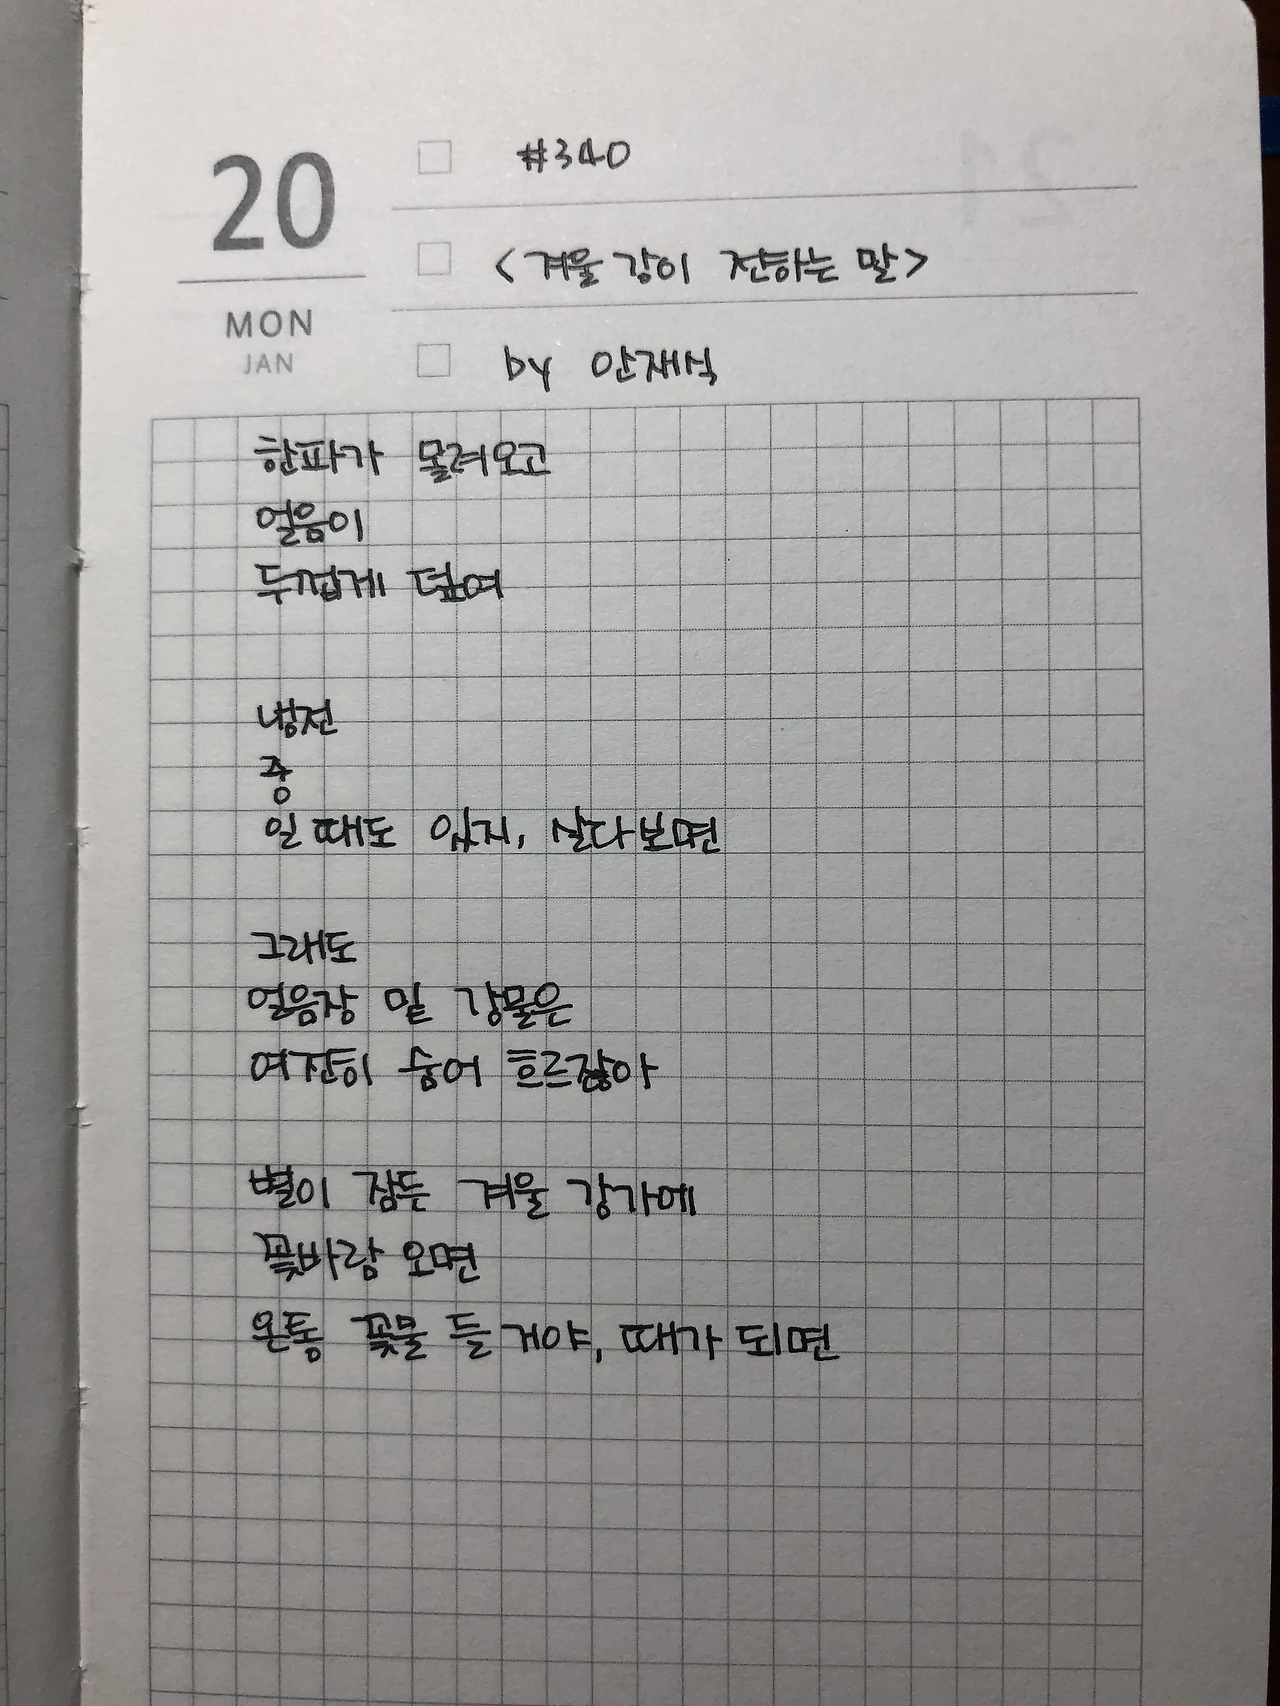 20
MON
JAN
#340
<겨울 강이 전하는 말>
by 안재식
한파가 몰려오고
얼음이
두껍게 덮여
냉전
중
일 때도 있지, 살다보면
그래도
얼음장 밑 강물은
여전히 숨어 흐르잖아
별이 잠든 겨울 강가에
꽃바람 오면
온통 꽃물 들 거야, 때가 되면